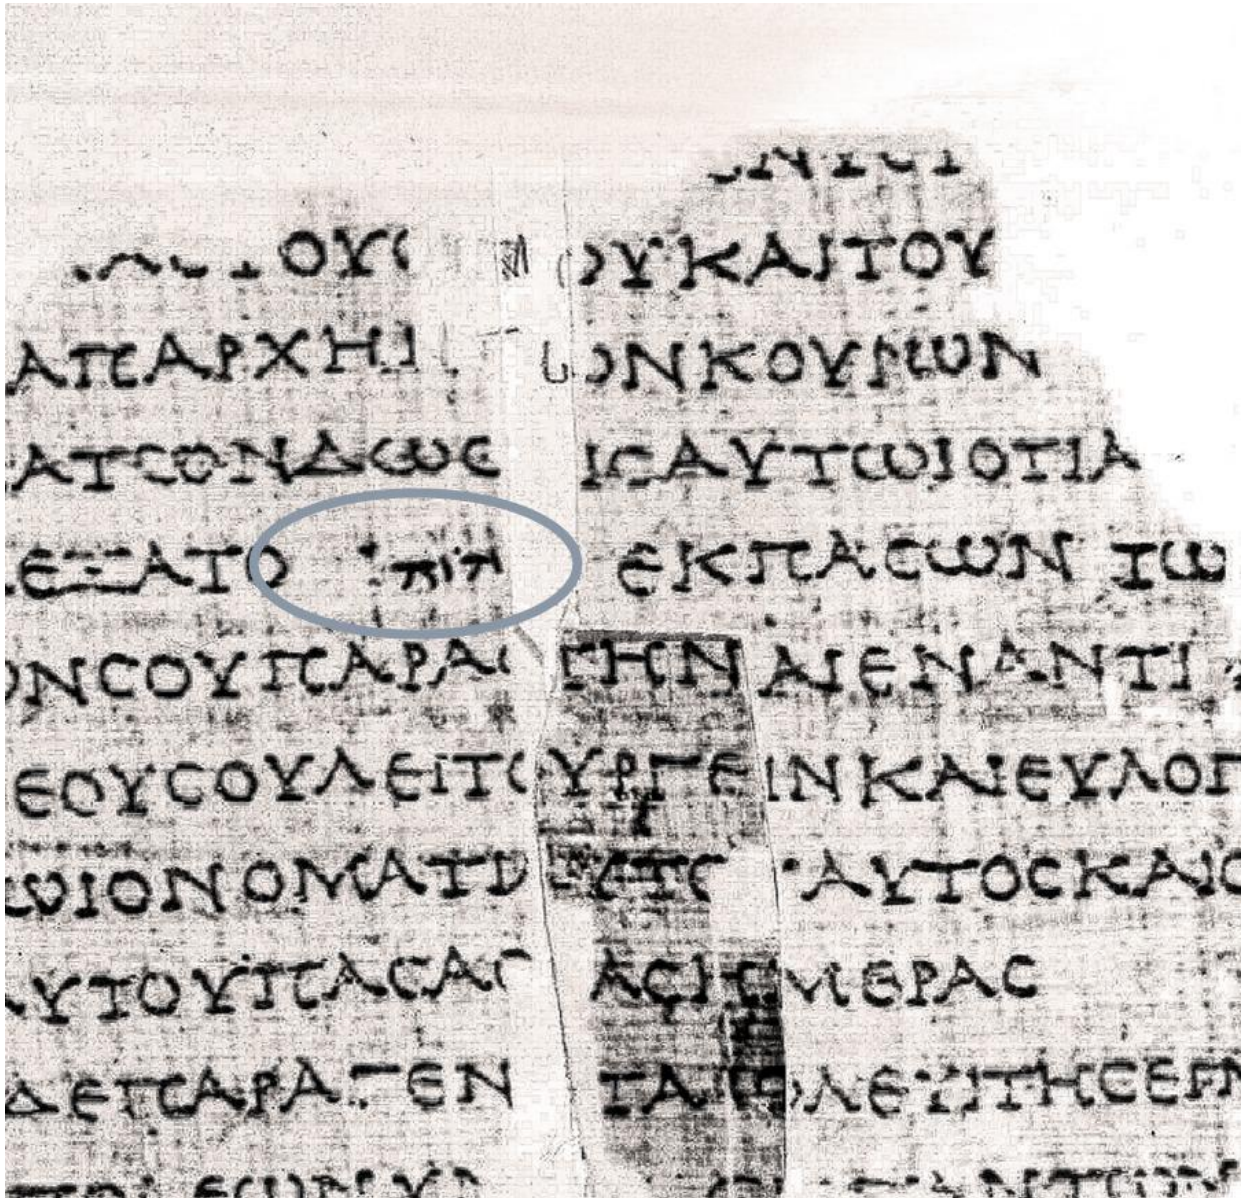 ΟΥϹ ΟΥΚΑΙΤΟΥ
ΑΠΑΡΧΗΙ ΩΝΚΟΥΡΩΝ
ΑΤΩΝΔΩϹ ΙϹΑΥΤΩΙΟΤΙΑ
ΕΞΑΤΟ יהוה ΕΚΠΑϹΩΝ ΤΩ
ΩΝϹΟΥΠΑΡΑϹΤΗΝΑΙΕΝΑΝΤΙ
ΕΟΥϹΟΥΛΕΙΤΟΥΡΓΕΙΝΚΑΙΕΥΛΟΓ
ΩΙΟΝΟΜΑΤΙ ΥΤΟ ΑΥΤΟϹΚΑΙΟ
ΑΥΤΟΥΠΑϹΑϹΤΑϹΗΜΕΡΑϹ
ΔΕΠΑΡΑΓΕΝ ΤΑΙΟΛΕΥΙΤΗϹΕΓ